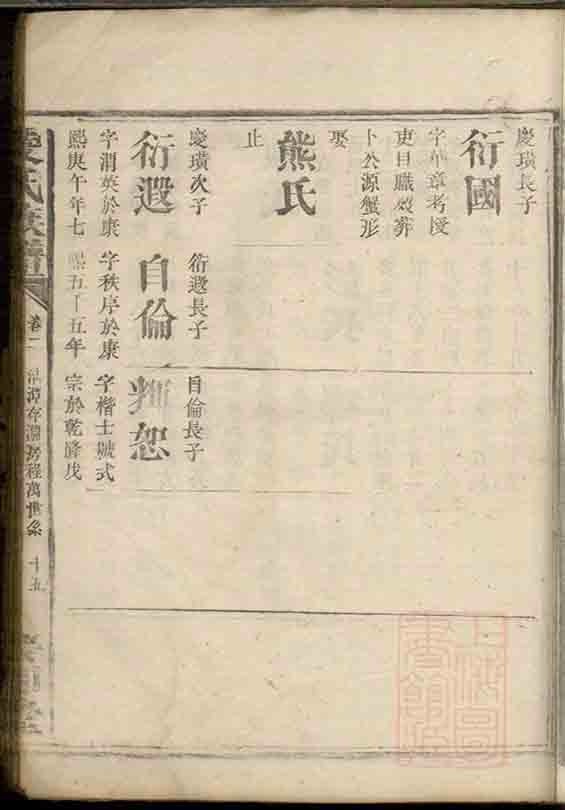 慶璜長子
衍國
字華章考授
吏目職歿葬
卜公源蟹形
娶
熊氏
止
慶璜次子
衍遐
字潤英於康
熙庚午年七
衍遐長子
自倫
字秩序於康
熙五十五年
自倫長子
恕
字楷士號式
宗於乾隆戊
氏族譜
卷二
存淵房程萬世系
十五